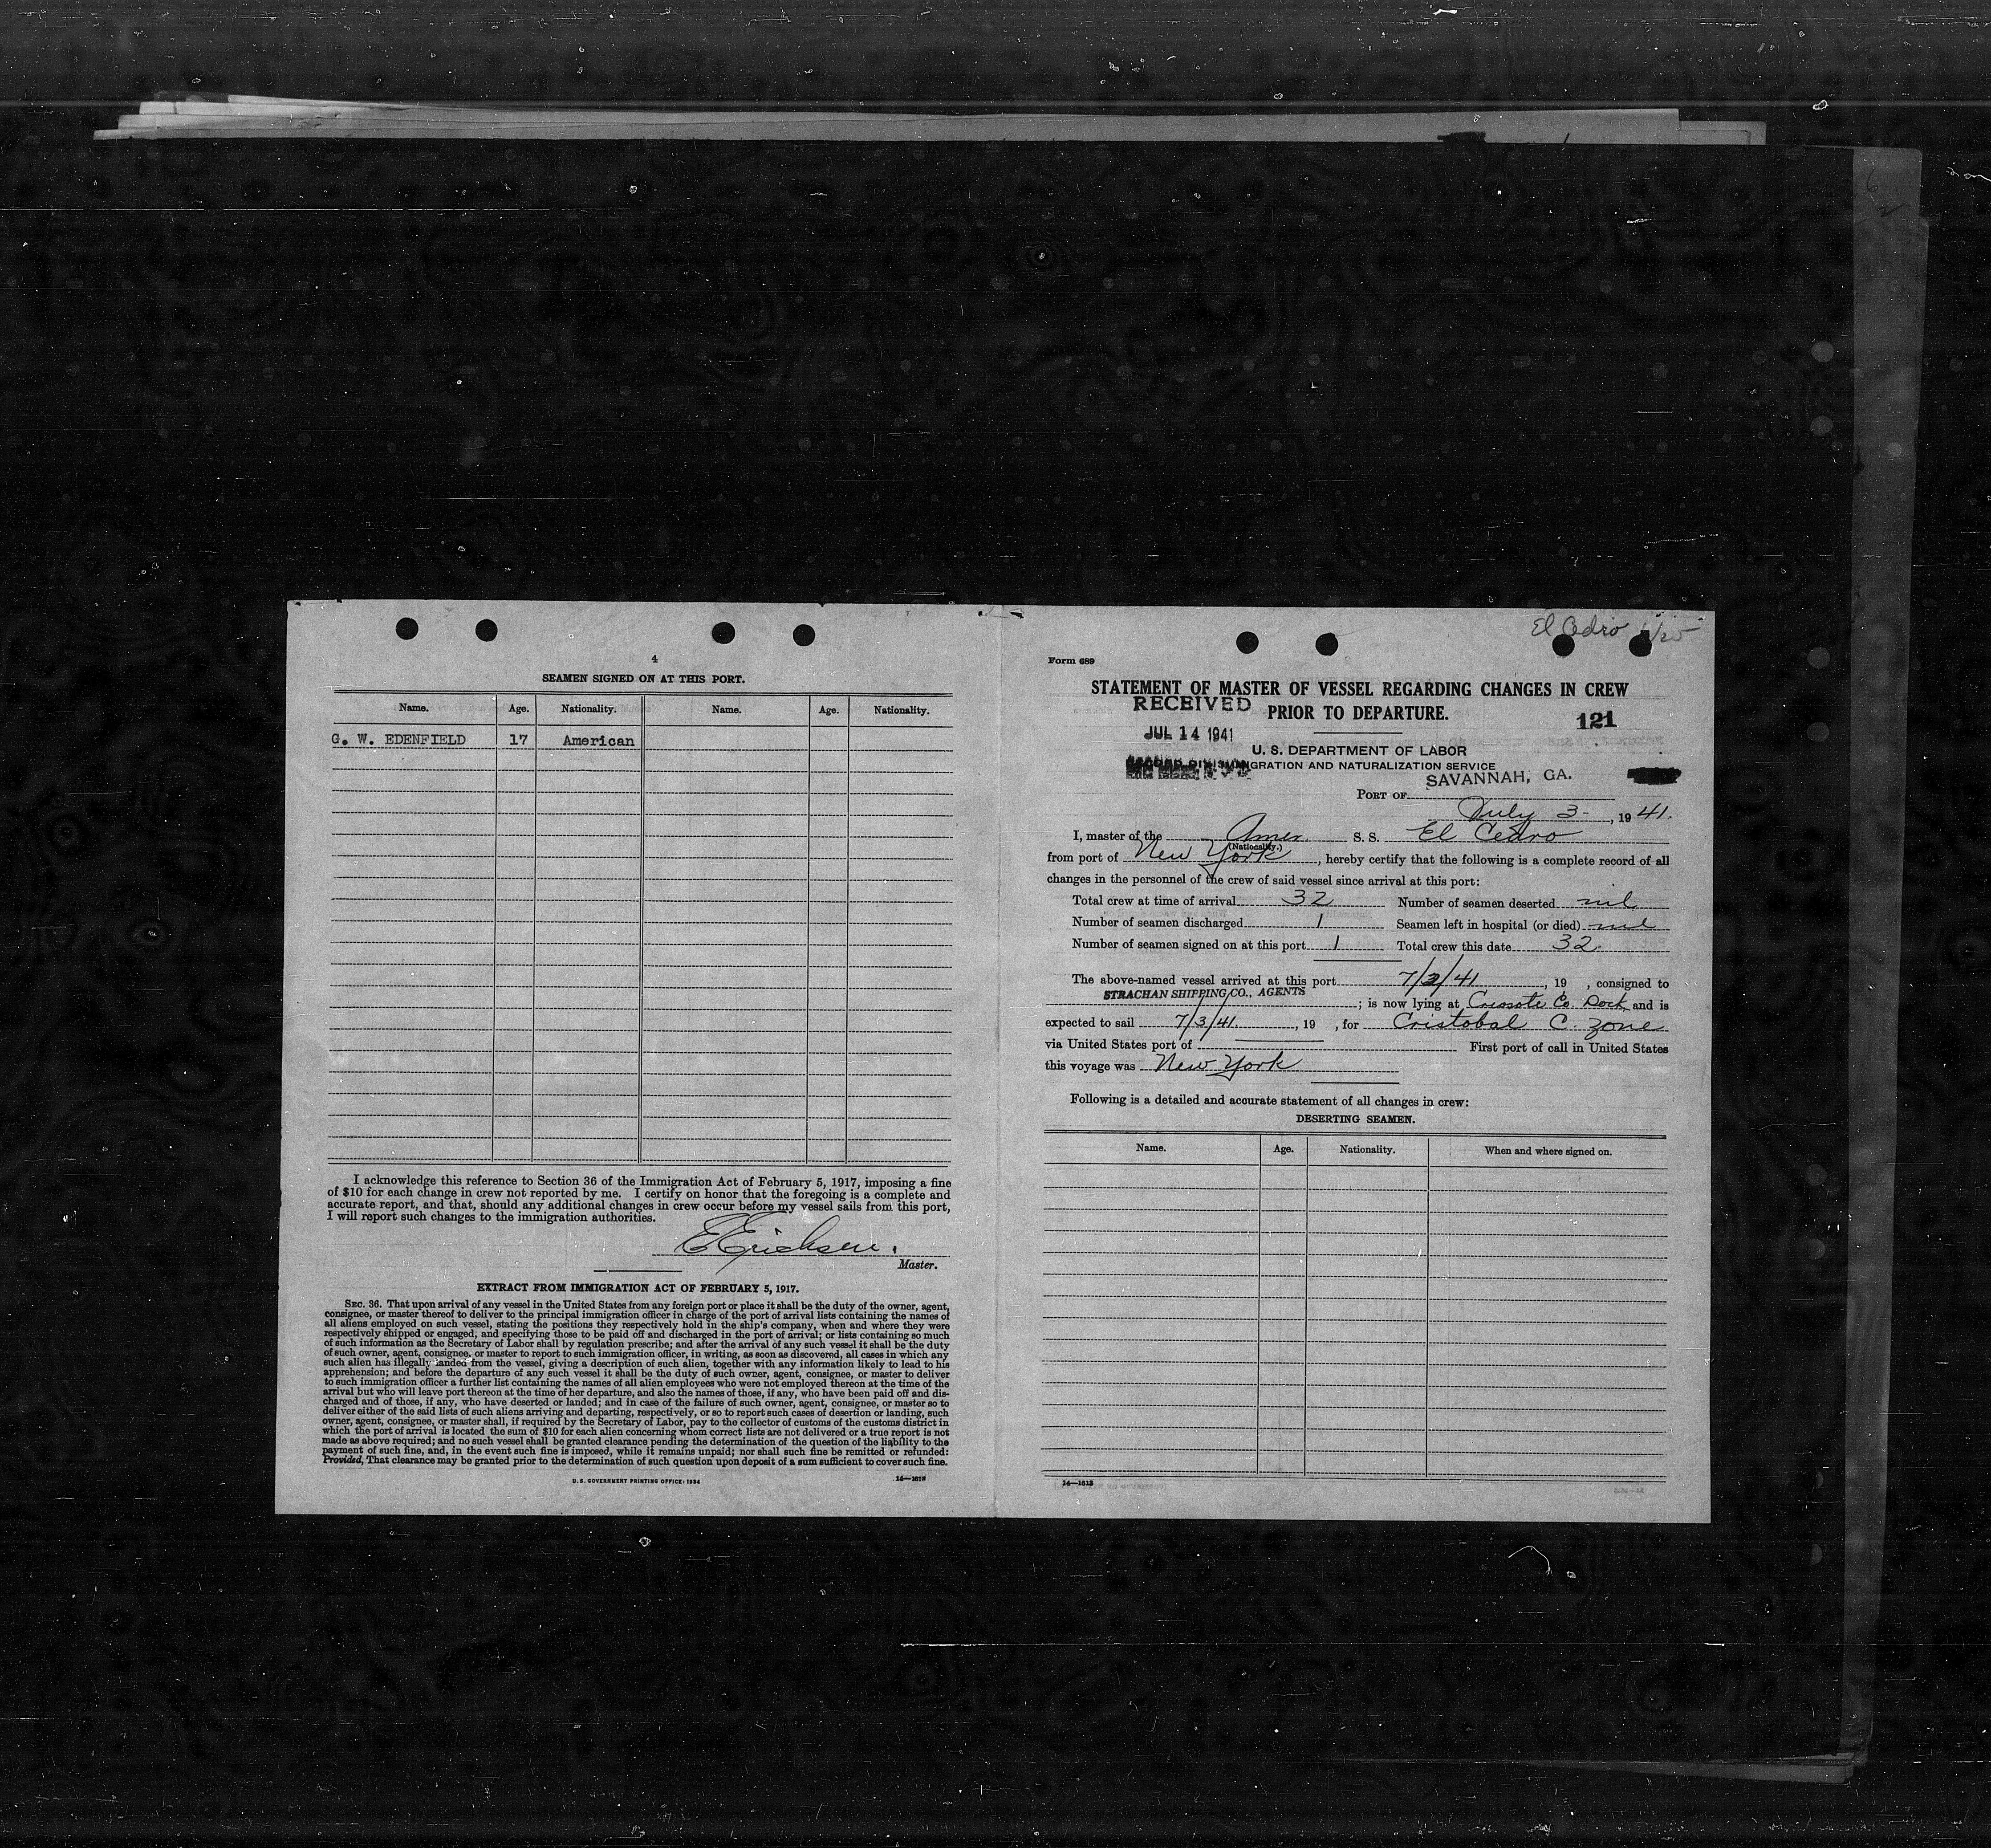 4
SEAMEN SIGNED ON AT THIS PORT.
Name. Age. Nationality. Name. Age. Nationality.
G. W. EDENFIELD 17 American
I acknowledge this reference to Section 36 of the Immigration Act of February 5, 1917, imposing a fine
of $10 for each change in crew not reported by me. I certify on honor that the foregoing is a complete and
accurate report, and that, should any additional changes in crew occur before my vessel sails from this port,
I will report such changes to the immigration authorities.
E Erichsen.
Master.
EXTRACT FROM IMMIGRATION ACT OF FEBRUARY 5, 1917.
SEC. 36. That upon arrival of any vessel in the United States from any foreign port or place it shall be the duty of the owner, agent,
consignee, or master thereof to deliver to the principal immigration officer in charge of the port of arrival lists containing the names of
all aliens employed on such vessel, stating the positions they respectively hold in the ship's company, when and where they were
respectively shipped or engaged, and specifying those to be paid off and discharged in the port of arrival; or lists containing so much
of such information as the Secretary of Labor shall by regulation prescribe; and after the arrival of any such vessel it shall be the duty
of such owner, agent, consignee, or master to report to such immigration officer, in writing, as soon as discovered, all cases in which any
such alien has illegally landed from the vessel, giving a description of such alien, together with any information likely to lead to his
apprehension; and before the departure of any such vessel it shall be the duty of such owner, agent, consignee, or master to deliver
to such immigration officer a further list containing the names of all alien employees who were not employed thereon at the time of the
arrival but who will leave port thereon at the time of her departure, and also the names of those, if any, who have been paid off and dis-
charged and of those, if any, who have deserted or landed; and in case of the failure of such owner, agent, consignee, or master so to
deliver either of the said lists of such aliens arriving and departing, respectively, or so to report such cases of desertion or landing, such
owner, agent, consignee, or master shall, if required by the Secretary of Labor, pay to the collector of customs of the customs district in
which the port of arrival is located the sum of $10 for each alien concerning whom correct lists are not delivered or a true report is not
made as above required; and no such vessel shall be granted clearance pending the determination of the question of the liability to the
payment of such fine, and, in the event such fine is imposed, while it remains unpaid; nor shall such fine be remitted or refunded:
Provided, That clearance may be granted prior to the determination of such question upon deposit of a sum sufficient to cover such fine.
U. S. GOVERNMENT PRINTING OFFICE: 1934 14—1613
El Cedro
Form 689
STATEMENT OF MASTER OF VESSEL REGARDING CHANGES IN CREW
RECEIVED PRIOR TO DEPARTURE. 121
JUL 14 1941
U. S. DEPARTMENT OF LABOR
IMMIGRATION AND NATURALIZATION SERVICE
SAVANNAH, GA.
PORT OF
July 3-, 1941.
I, master of the Amer. S. S. El Cedro
(Nationality.)
from port of New York, hereby certify that the following is a complete record of all
changes in the personnel of the crew of said vessel since arrival at this port:
Total crew at time of arrival 32 Number of seamen deserted nil
Number of seamen discharged 1 Seamen left in hospital (or died) nil
Number of seamen signed on at this port 1 Total crew this date 32.
The above-named vessel arrived at this port 7/2/41, 19 , consigned to
STRACHAN SHIPPING CO., AGENTS; is now lying at Creosote Co. Dock, and is
expected to sail 7/3/41., 19 , for Cristobal C. Zone
via United States port of First port of call in United States
this voyage was New York
Following is a detailed and accurate statement of all changes in crew:
DESERTING SEAMEN.
Name. Age. Nationality. When and where signed on.
14—1613